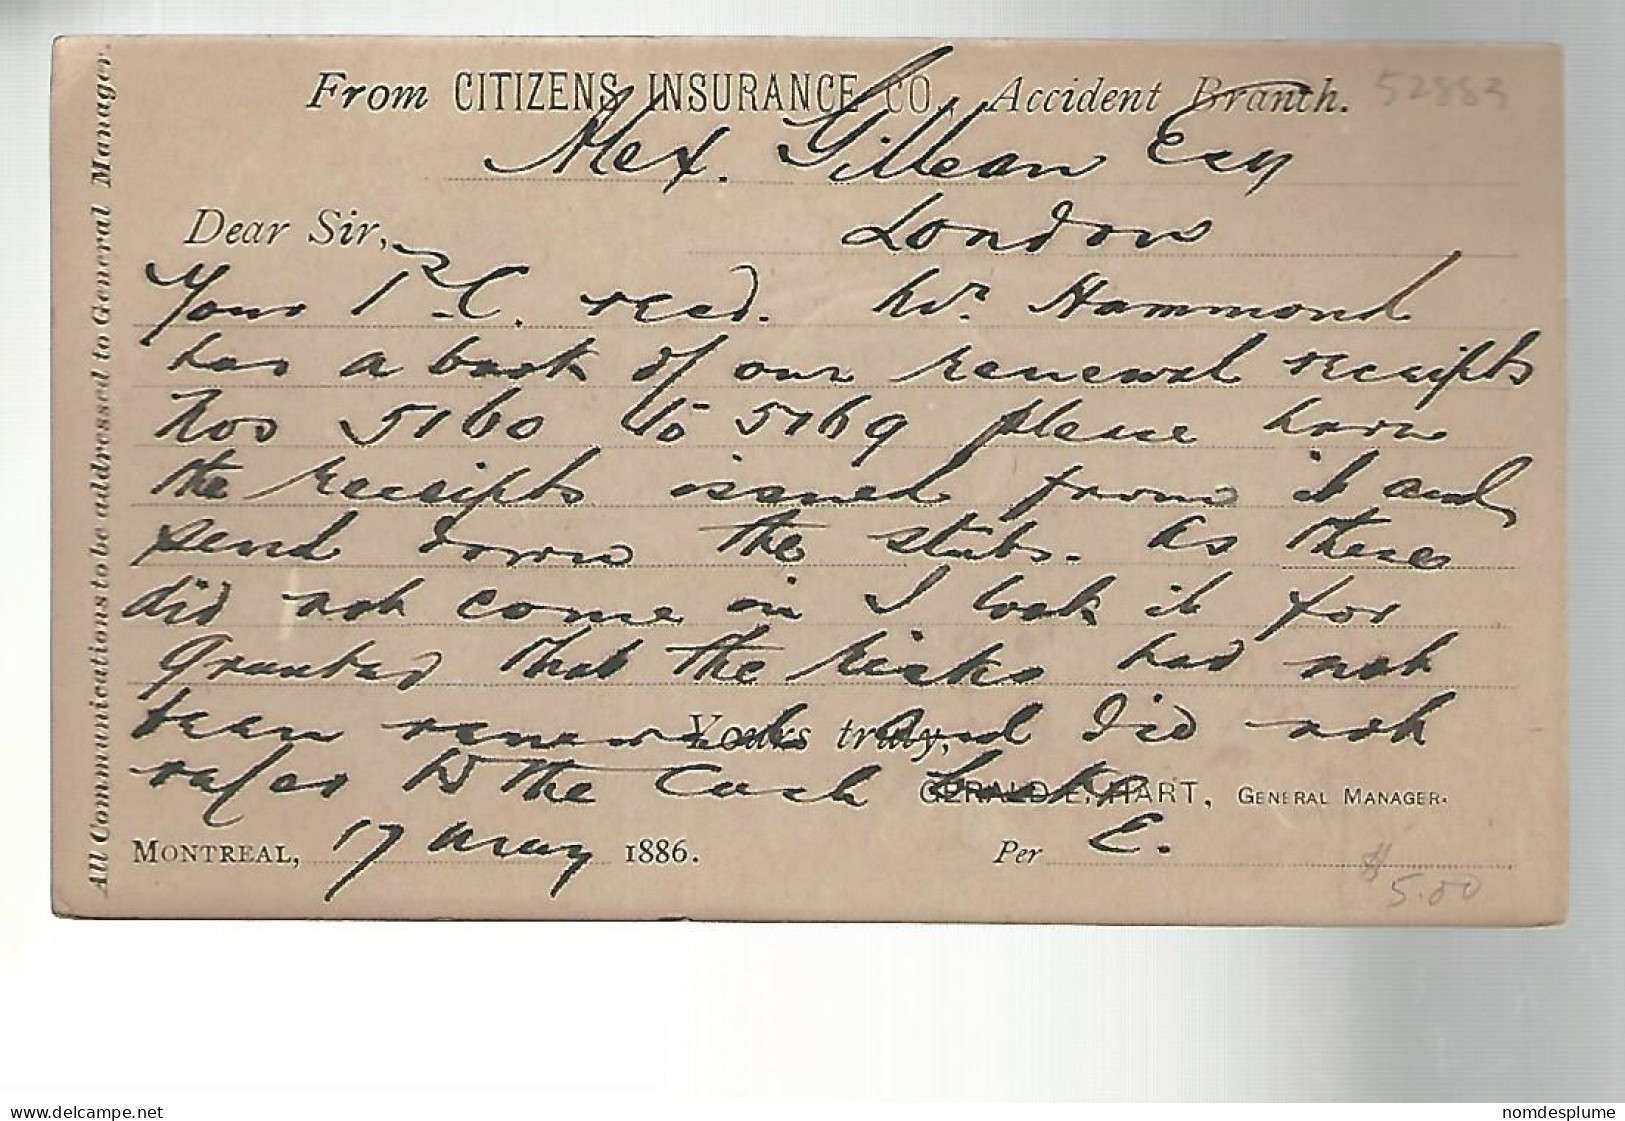 From CITIZENS INSURANCE CO., Accident Branch. 52883
Alex. Gillean Esq
London
Dear Sir,
Your P.C. recd. Mr. Hammond
has a book of our renewal receipts
Nos 5160 to 5169 please have
the receipts issued from it and
send down the stubs. As these
did not come in I took it for
granted that the risks had not
been renewed and did not
refer to the Cash book
Yours truly,
GERALD E. HART, GENERAL MANAGER.
MONTREAL, 17 May 1886. Per E.
$ 5.00
All Communications to be addressed to General Manager.
www.delcampe.net nomdesplume